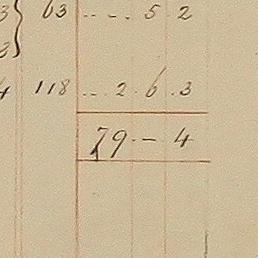 3 } 63 .... 5 2
3
4 118 ... 2 . 6 . 3
79 . — 4